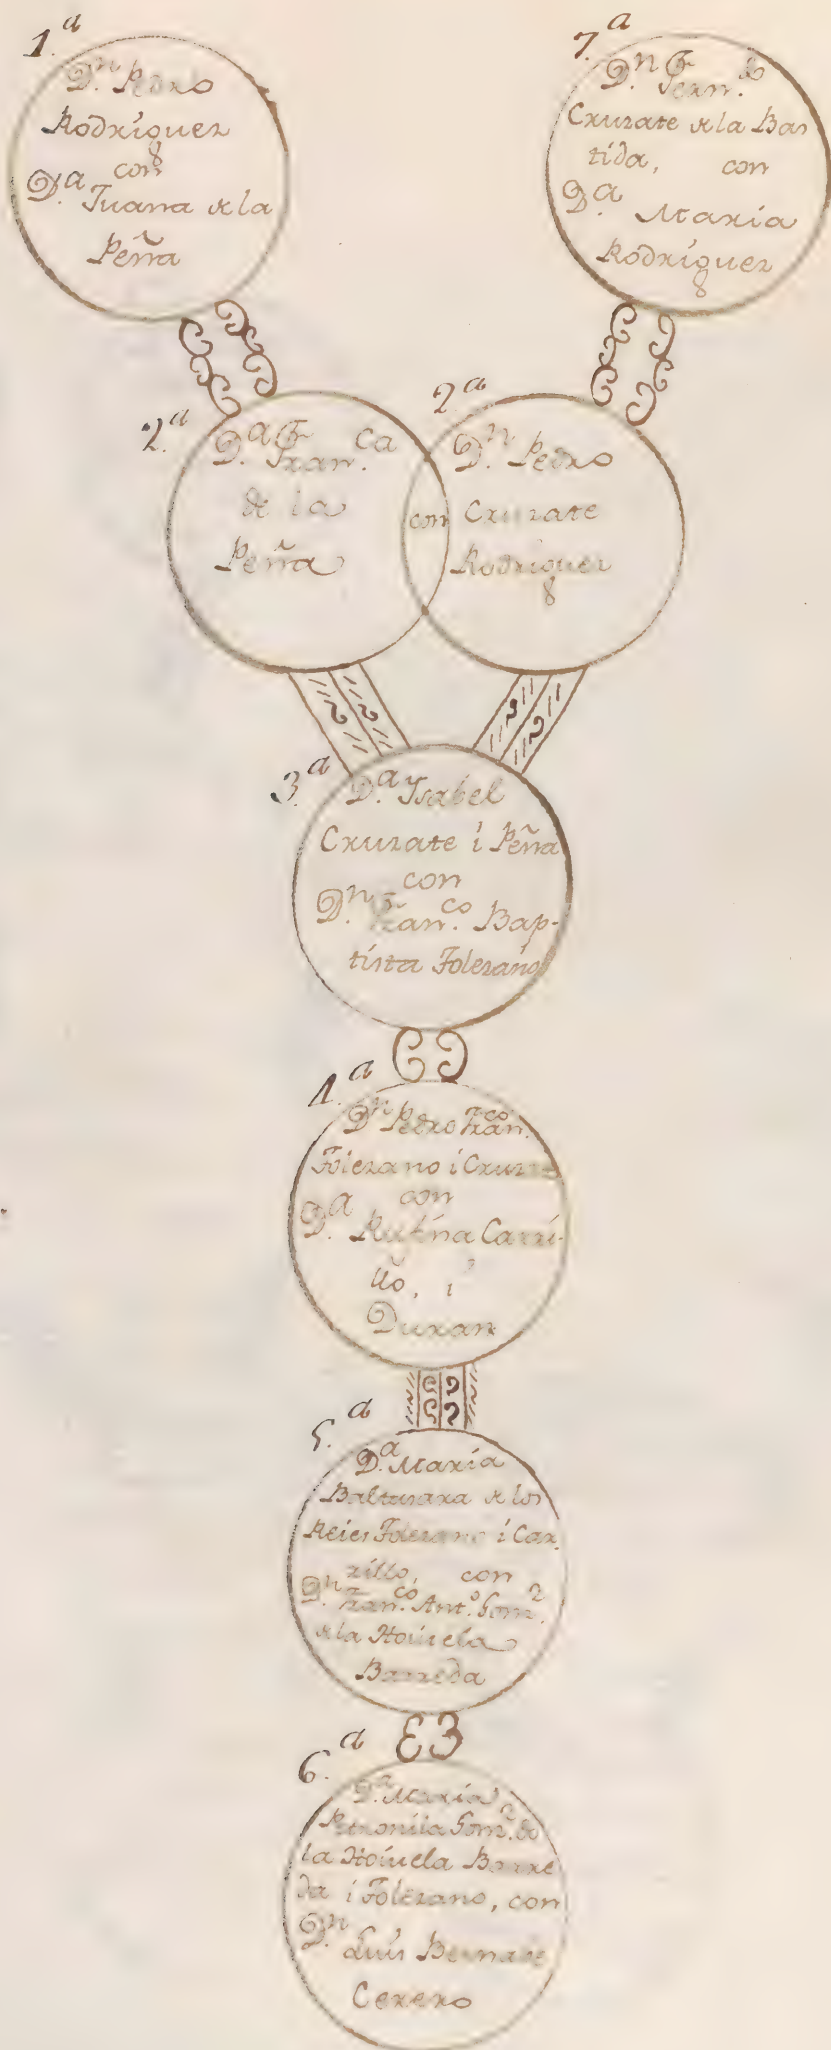 1.ª
Dn. Pedro
Rodriguez
con
D.ª Juana de la
Peña
7.ª
Dn. Fern.do
Cruzate de la Bas
tida, con
D.ª Maria
Rodriguez
2.ª
D.ª Fran.ca
de la
Peña
2.ª
Dn. Pedro
con Cruzate
Rodriguez
3.ª
D.ª Ysabel
Cruzate i Peña
con
Dn. Fran.co Bap-
tista Tolezano
4.ª
Dn. Pedro Fran.co
Tolezano i Cruzate
con
D.ª Rufina Carri-
llo, i
Duran
5.ª
D.ª Maria
Baltasara de los
Reies Tolezano i Car-
rillo, con
Dn. Fran.co Ant.o Gomz.
de la Hoiuela
Barreda
6.ª
D.ª Maria
Petronila Gomz. de
la Hoiuela Barre
da i Tolezano, con
Dn. Luis Bernabe
Cerero